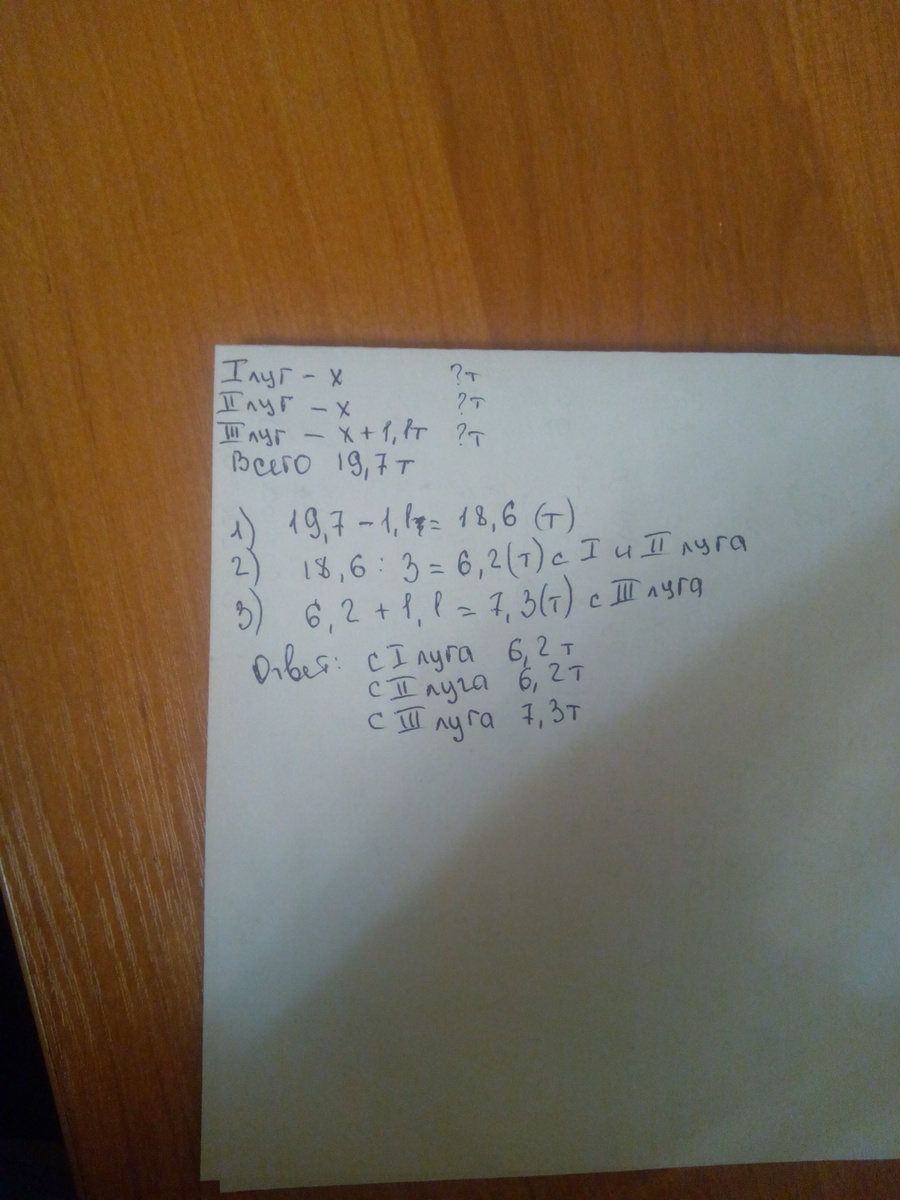 I луг - х ?т
II луг - х ?т
III луг - х + 1,1т ?т
Всего 19,7 т
1) 19,7 - 1,1 = 18,6 (т)
2) 18,6 : 3 = 6,2 (т) с I и II луга
3) 6,2 + 1,1 = 7,3 (т) с III луга
Ответ: с I луга 6,2 т
с II луга 6,2 т
с III луга 7,3 т